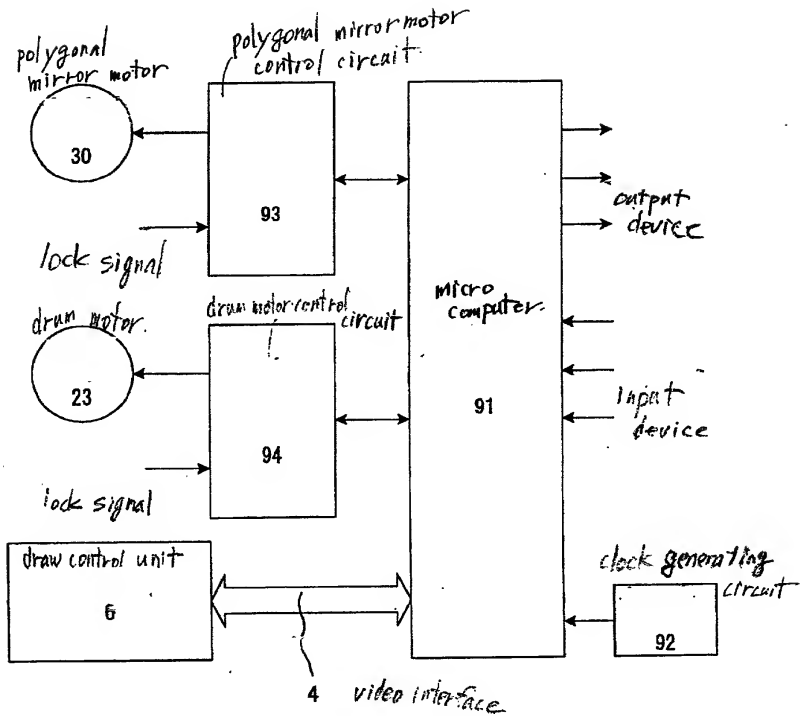 polygonal
mirror motor
30
polygonal mirror motor
control circuit.
93
lock signal
drum motor.
23
drum motor control
circuit
94
lock signal
draw control unit
6
4 video interface
micro
computer.
91
output
device
input
device
clock generating
circuit
92